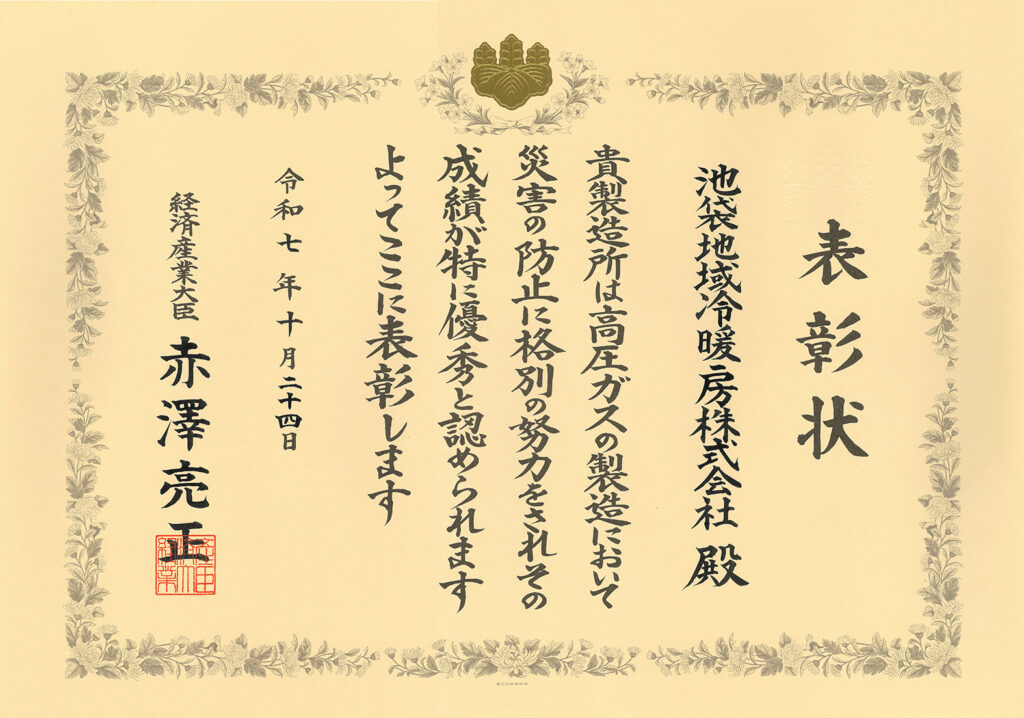 表彰状
池袋地域冷暖房株式会社 殿
貴製造所は高圧ガスの製造において
災害の防止に格別の努力をされその
成績が特に優秀と認められます
よってここに表彰します
令和七年十月二十四日
経済産業大臣 赤澤亮正